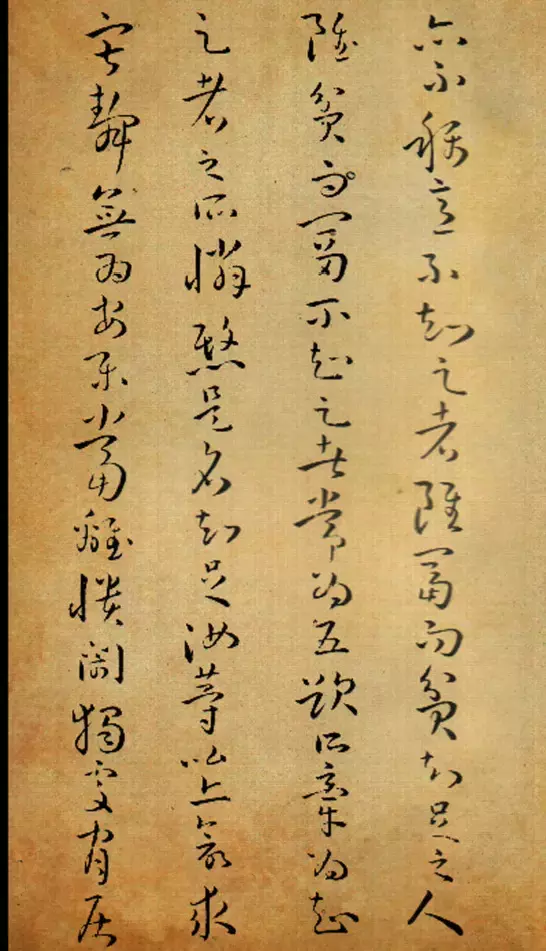 亦不稱意不知足者雖富而貧知足之人
雖貧而富不知足者常為五欲所牽為知
足者之所憐愍是名知足汝等比丘若求
寂靜無為安樂當離憒鬧獨處閒居